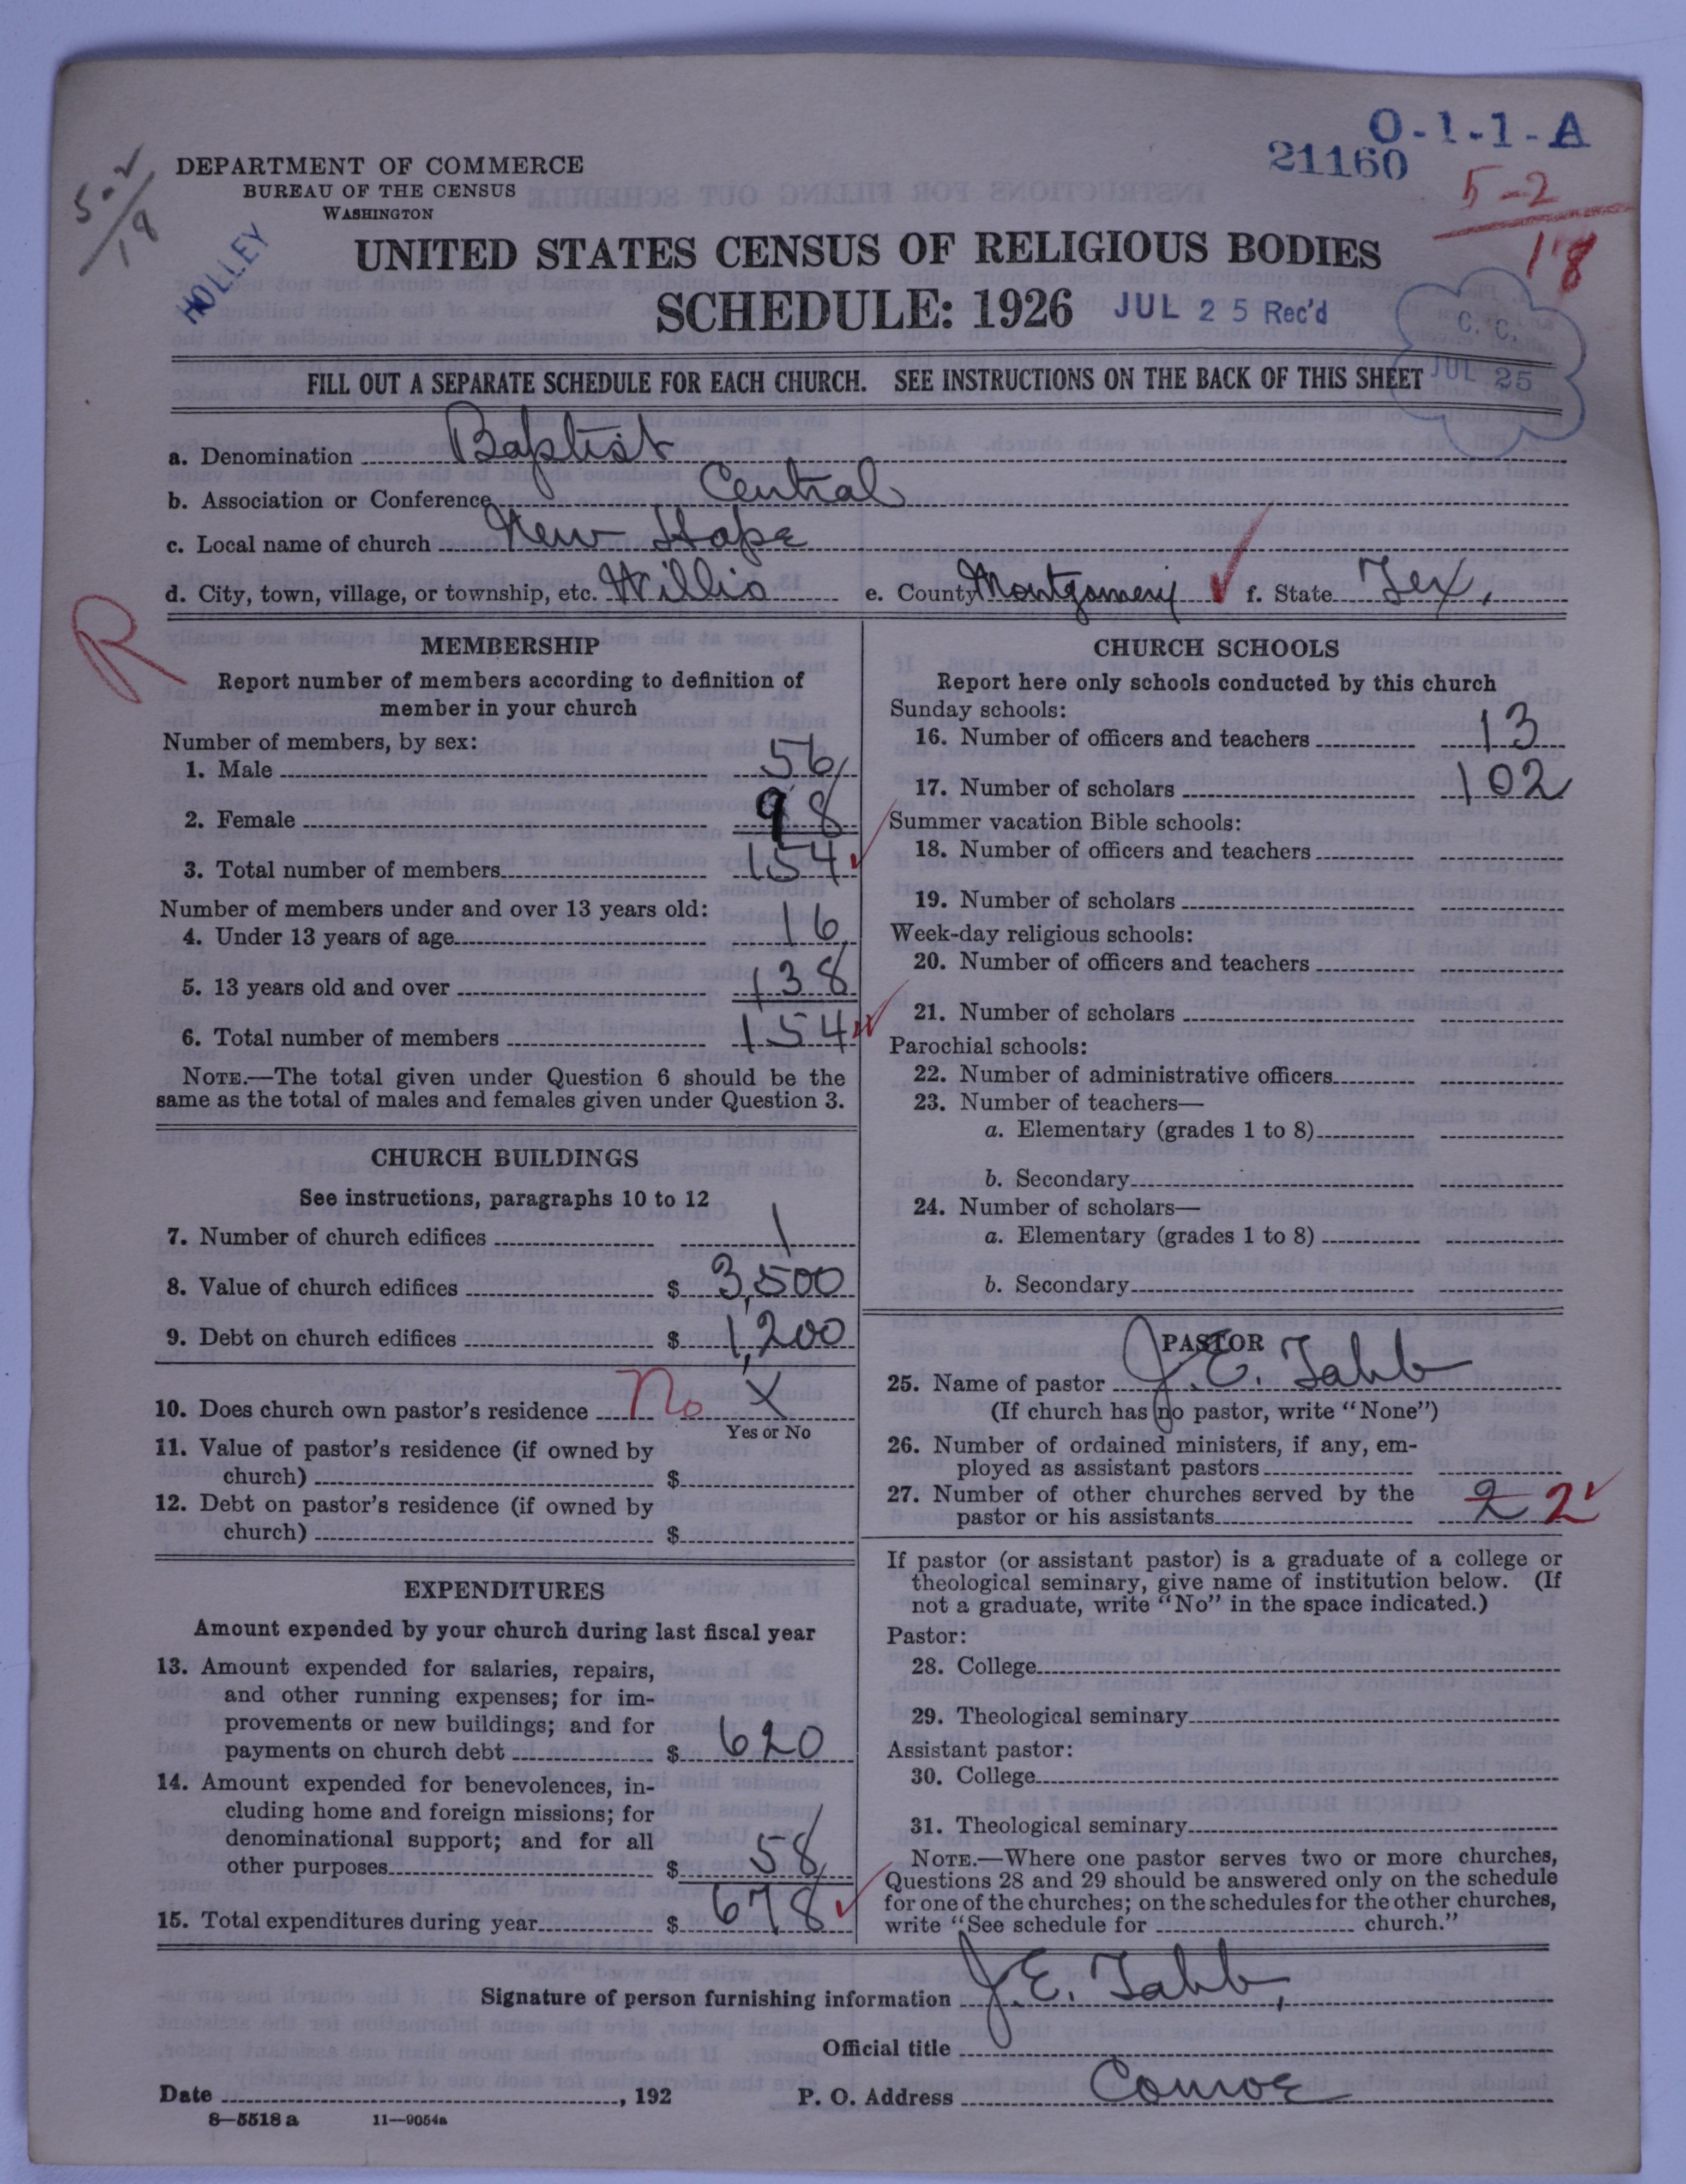 O-1-1-A
21160
5-2
18
5-2
18
DEPARTMENT OF COMMERCE
BUREAU OF THE CENSUS
WASHINGTON
HOLLEY
UNITED STATES CENSUS OF RELIGIOUS BODIES
SCHEDULE: 1926 JUL 25 Rec'd
C. C.
JUL 25
FILL OUT A SEPARATE SCHEDULE FOR EACH CHURCH. SEE INSTRUCTIONS ON THE BACK OF THIS SHEET
a. Denomination Baptist
b. Association or Conference Central
c. Local name of church New Hope
d. City, town, village, or township, etc. Willis e. County Montgomery f. State Tex.
R
MEMBERSHIP
Report number of members according to definition of
member in your church
Number of members, by sex:
1. Male 56
2. Female 98
3. Total number of members 154
Number of members under and over 13 years old:
4. Under 13 years of age 16
5. 13 years old and over 138
6. Total number of members 154
NOTE.—The total given under Question 6 should be the
same as the total of males and females given under Question 3.
CHURCH BUILDINGS
See instructions, paragraphs 10 to 12
7. Number of church edifices 1
8. Value of church edifices $ 3,500
9. Debt on church edifices $ 1,200
10. Does church own pastor's residence No X
Yes or No
11. Value of pastor's residence (if owned by
church) $
12. Debt on pastor's residence (if owned by
church) $
EXPENDITURES
Amount expended by your church during last fiscal year
13. Amount expended for salaries, repairs,
and other running expenses; for im-
provements or new buildings; and for
payments on church debt $ 620
14. Amount expended for benevolences, in-
cluding home and foreign missions; for
denominational support; and for all
other purposes $ 58
15. Total expenditures during year $ 678
CHURCH SCHOOLS
Report here only schools conducted by this church
Sunday schools:
16. Number of officers and teachers 13
17. Number of scholars 102
Summer vacation Bible schools:
18. Number of officers and teachers
19. Number of scholars
Week-day religious schools:
20. Number of officers and teachers
21. Number of scholars
Parochial schools:
22. Number of administrative officers
23. Number of teachers—
a. Elementary (grades 1 to 8)
b. Secondary
24. Number of scholars—
a. Elementary (grades 1 to 8)
b. Secondary
PASTOR
25. Name of pastor J. E. Tabb
(If church has no pastor, write "None")
26. Number of ordained ministers, if any, em-
ployed as assistant pastors
27. Number of other churches served by the
pastor or his assistants 2 2
If pastor (or assistant pastor) is a graduate of a college or
theological seminary, give name of institution below. (If
not a graduate, write "No" in the space indicated.)
Pastor:
28. College
29. Theological seminary
Assistant pastor:
30. College
31. Theological seminary
NOTE.—Where one pastor serves two or more churches,
Questions 28 and 29 should be answered only on the schedule
for one of the churches; on the schedules for the other churches,
write "See schedule for church."
Signature of person furnishing information J. E. Tabb,
Official title
Date , 192 P. O. Address Conroe
8—5518 a 11—9054a